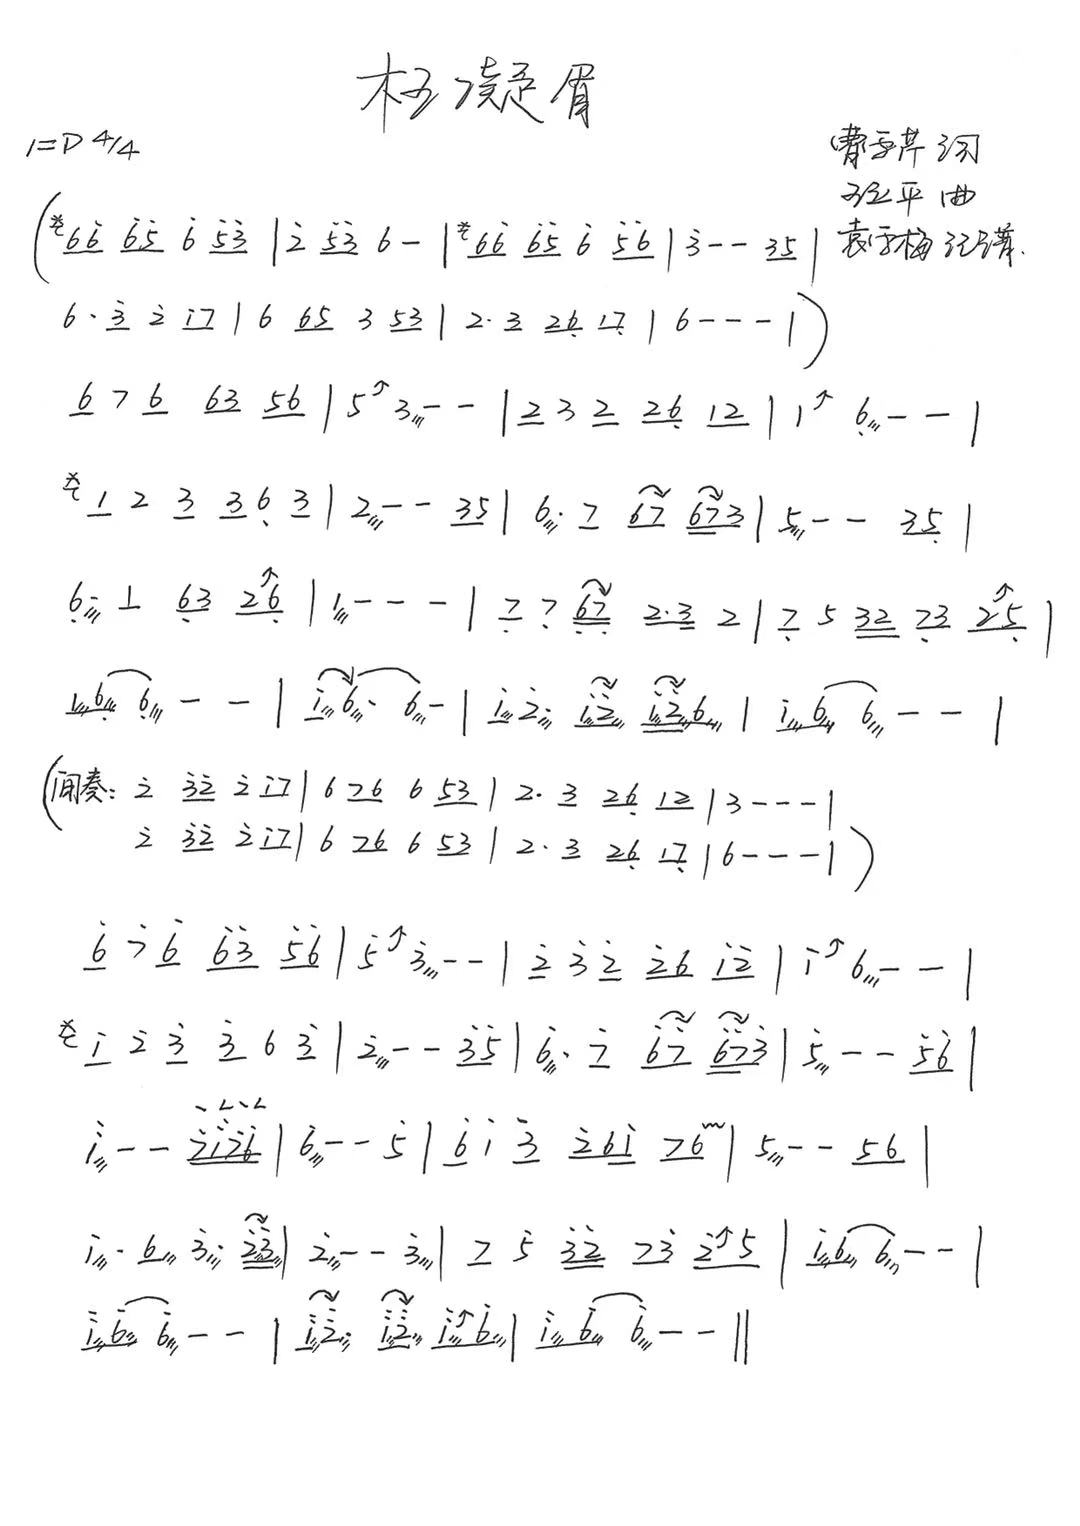 枉凝眉
1=D 4/4
曹雪芹 词
王立平 曲
袁雪梅 记谱.
(66 65 6 53 | 2 53 6 - | 66 65 6 56 | 3 - - 35 |
6 · 3 2 17 | 6 65 3 53 | 2 · 3 26 17 | 6 - - - | )
6 7 6 63 56 | 5 3 - - | 2 3 2 26 12 | 1 6 - - |
1 2 3 3 6 3 | 2 - - 35 | 6 · 7 67 673 | 5 - - 35 |
6 · 1 63 26 | 1 - - - | 7 7 67 2·3 2 | 7 5 32 73 25 |
1 6 6 - - | 1 6 · 6 - | 1 2 · 12 126 | 1 6 6 - - |
(间奏: 2 32 2 17 | 6 76 6 53 | 2 · 3 26 12 | 3 - - - |
2 32 2 17 | 6 76 6 53 | 2 · 3 26 17 | 6 - - - | )
6 7 6 63 56 | 5 3 - - | 2 3 2 26 12 | 1 6 - - |
1 2 3 3 6 3 | 2 - - 35 | 6 · 7 67 673 | 5 - - 56 |
1 - - 2176 | 6 - - 5 | 6 1 3 261 76 | 5 - - 56 |
1 · 6 3 · 23 | 2 - - 3 | 7 5 32 73 25 | 1 6 6 - - |
1 6 6 - - | 12 · 12 · 16 | 1 6 6 - - ||